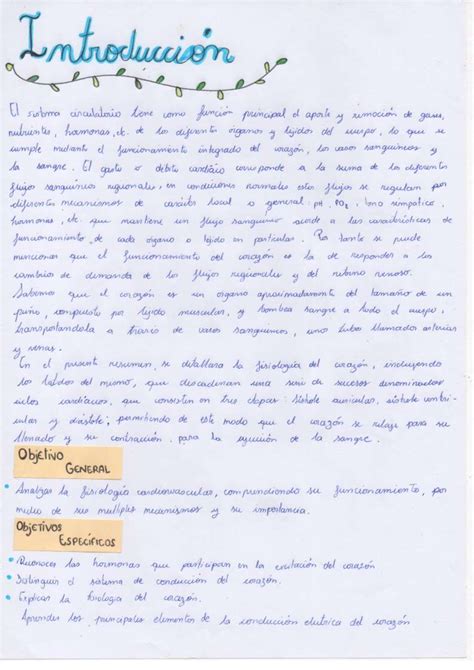 Introducción
El sistema circulatorio tiene como función principal el aporte y remoción de gases,
nutrientes, hormonas, etc. de los diferentes órganos y tejidos del cuerpo, lo que se
cumple mediante el funcionamiento integrado del corazón, los vasos sanguíneos y
la sangre. El gasto o débito cardíaco corresponde a la suma de los diferentes
flujos sanguíneos regionales, en condiciones normales estos flujos se regulan por
diferentes mecanismos de carácter local o general: pH, PO2, tono simpático,
hormonas, etc. que mantiene un flujo sanguíneo acorde a las características de
funcionamiento de cada órgano o tejido en particular. Por tanto se puede
mencionar que el funcionamiento del corazón es la de responder a los
cambios de demanda de los flujos regionales y del retorno venoso.
Sabemos que el corazón es un órgano aproximadamente del tamaño de un
puño, compuesto por tejido muscular, y bombea sangre a todo el cuerpo,
transportandola a través de vasos sanguíneos, unos tubos llamados arterias
y venas.
En el presente resumen, se detallara la fisiología del corazón, incluyendo
los latidos del mismo, que desencadenan una serie de sucesos denominados
ciclos cardíacos, que consisten en tres etapas: Sístole auricular, sístole ventri-
cular y diástole; permitiendo de este modo que el corazón se relaje para su
llenado y su contracción, para la eyección de la sangre.
Objetivo
General
• Analizar la fisiología cardiovascular, comprendiendo su funcionamiento, por
medio de sus múltiples mecanismos y su importancia.
Objetivos
Específicos
• Reconocer las hormonas que participan en la excitación del corazón
• Distinguir el sistema de conducción del corazón.
• Explicar la fisiología del corazón.
Aprender los principales elementos de la conducción eléctrica del corazón